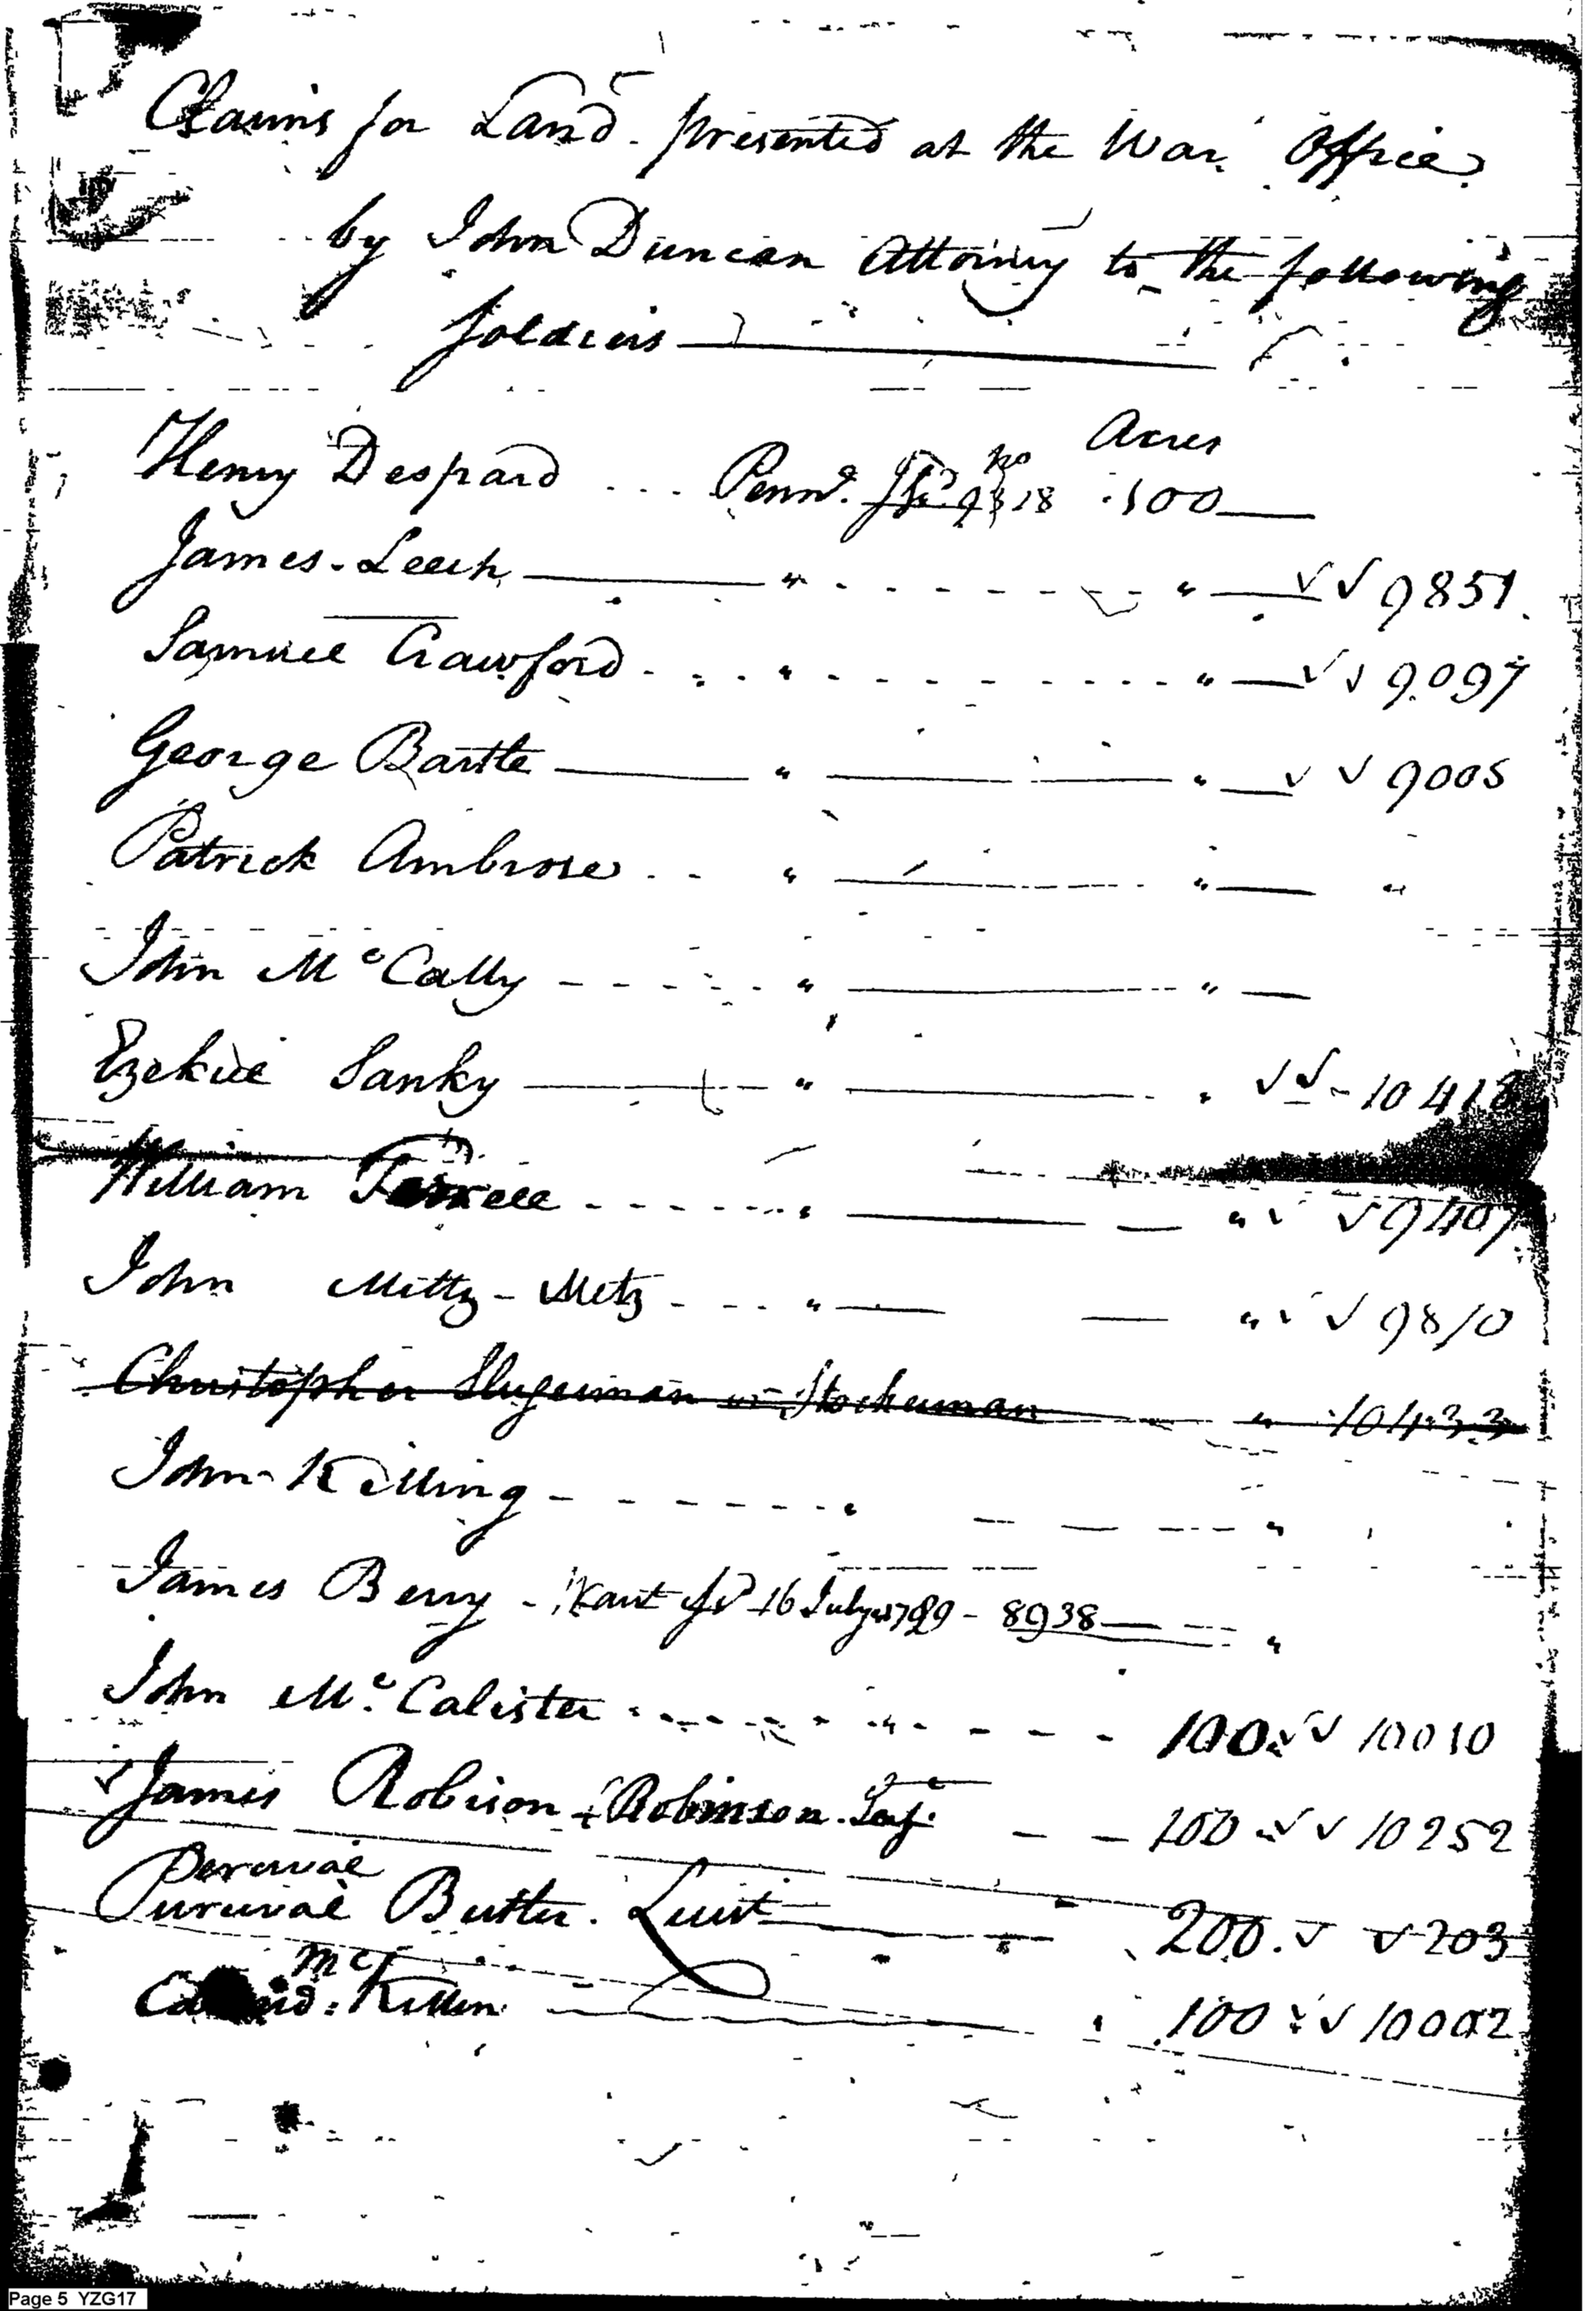 Claims for Land presented at the War Office
by John Duncan Attorney to the following
Soldiers
Acres
Henry Despard ... Penna. No 9318 100
James Leech " " ✓✓ 9851
Samuel Crawford " " ✓✓ 9097
George Bartle " " ✓✓ 9005
Patrick Ambrose " " "
John McCally " "
Ezekiel Sanky " " ✓✓ 10418
William Ferrell " " ✓✓ 9407
John Mittz - Metz " " ✓✓ 9810
Christopher or Stockeman " 10433
John Killing " "
James Berry - Want 16 July 1789 - 8938 "
John Mc Calister " 100 ✓✓ 10010
✓ James Robison Robinson. 100 ✓✓ 10252
Percival
Purcival Butler. Lieut " 200. ✓ ✓ 203
Mc
Killin 100 ✓ 10002
Page 5 YZG17